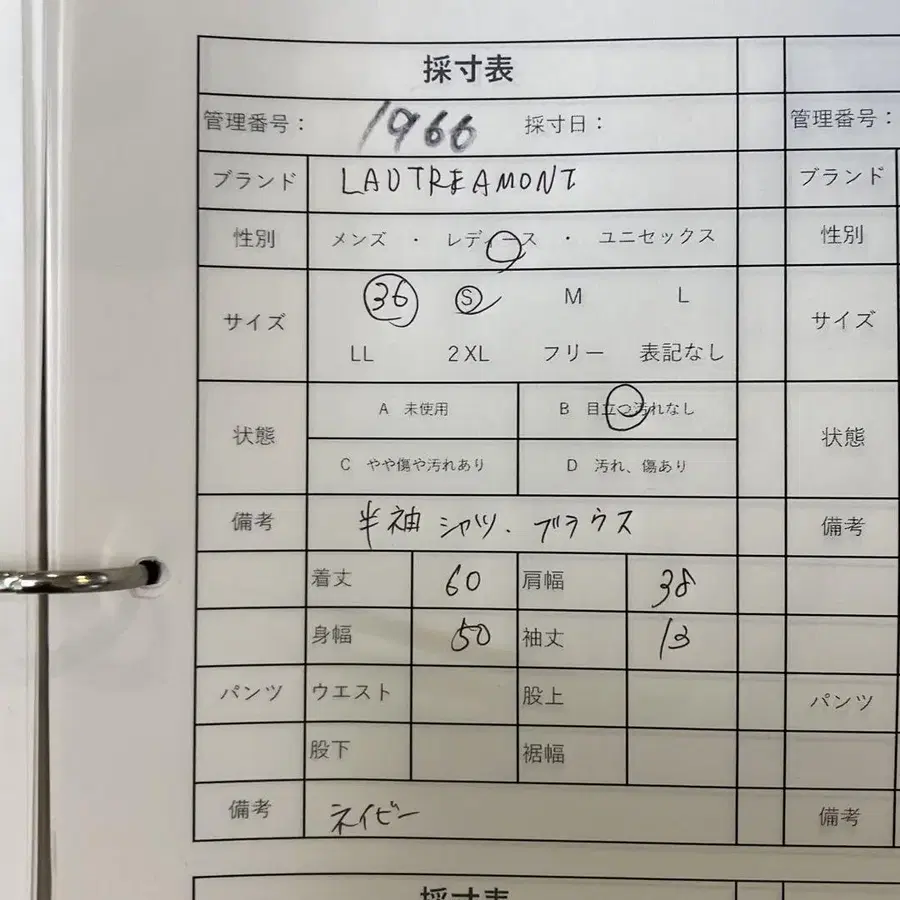 採寸表
管理番号： 1966 採寸日：
ブランド LAUTREAMONT
性別 メンズ ・ レディース ・ ユニセックス
サイズ 36 S M L
LL 2XL フリー 表記なし
状態 A 未使用 B 目立つ汚れなし
C やや傷や汚れあり D 汚れ、傷あり
備考 半袖シャツ．ブラウス
着丈 60 肩幅 38
身幅 50 袖丈 13
パンツ ウエスト 股上
股下 裾幅
備考 ネイビー
管理番号：
ブランド
性別
サイズ
状態
備考
パンツ
備考
採寸表